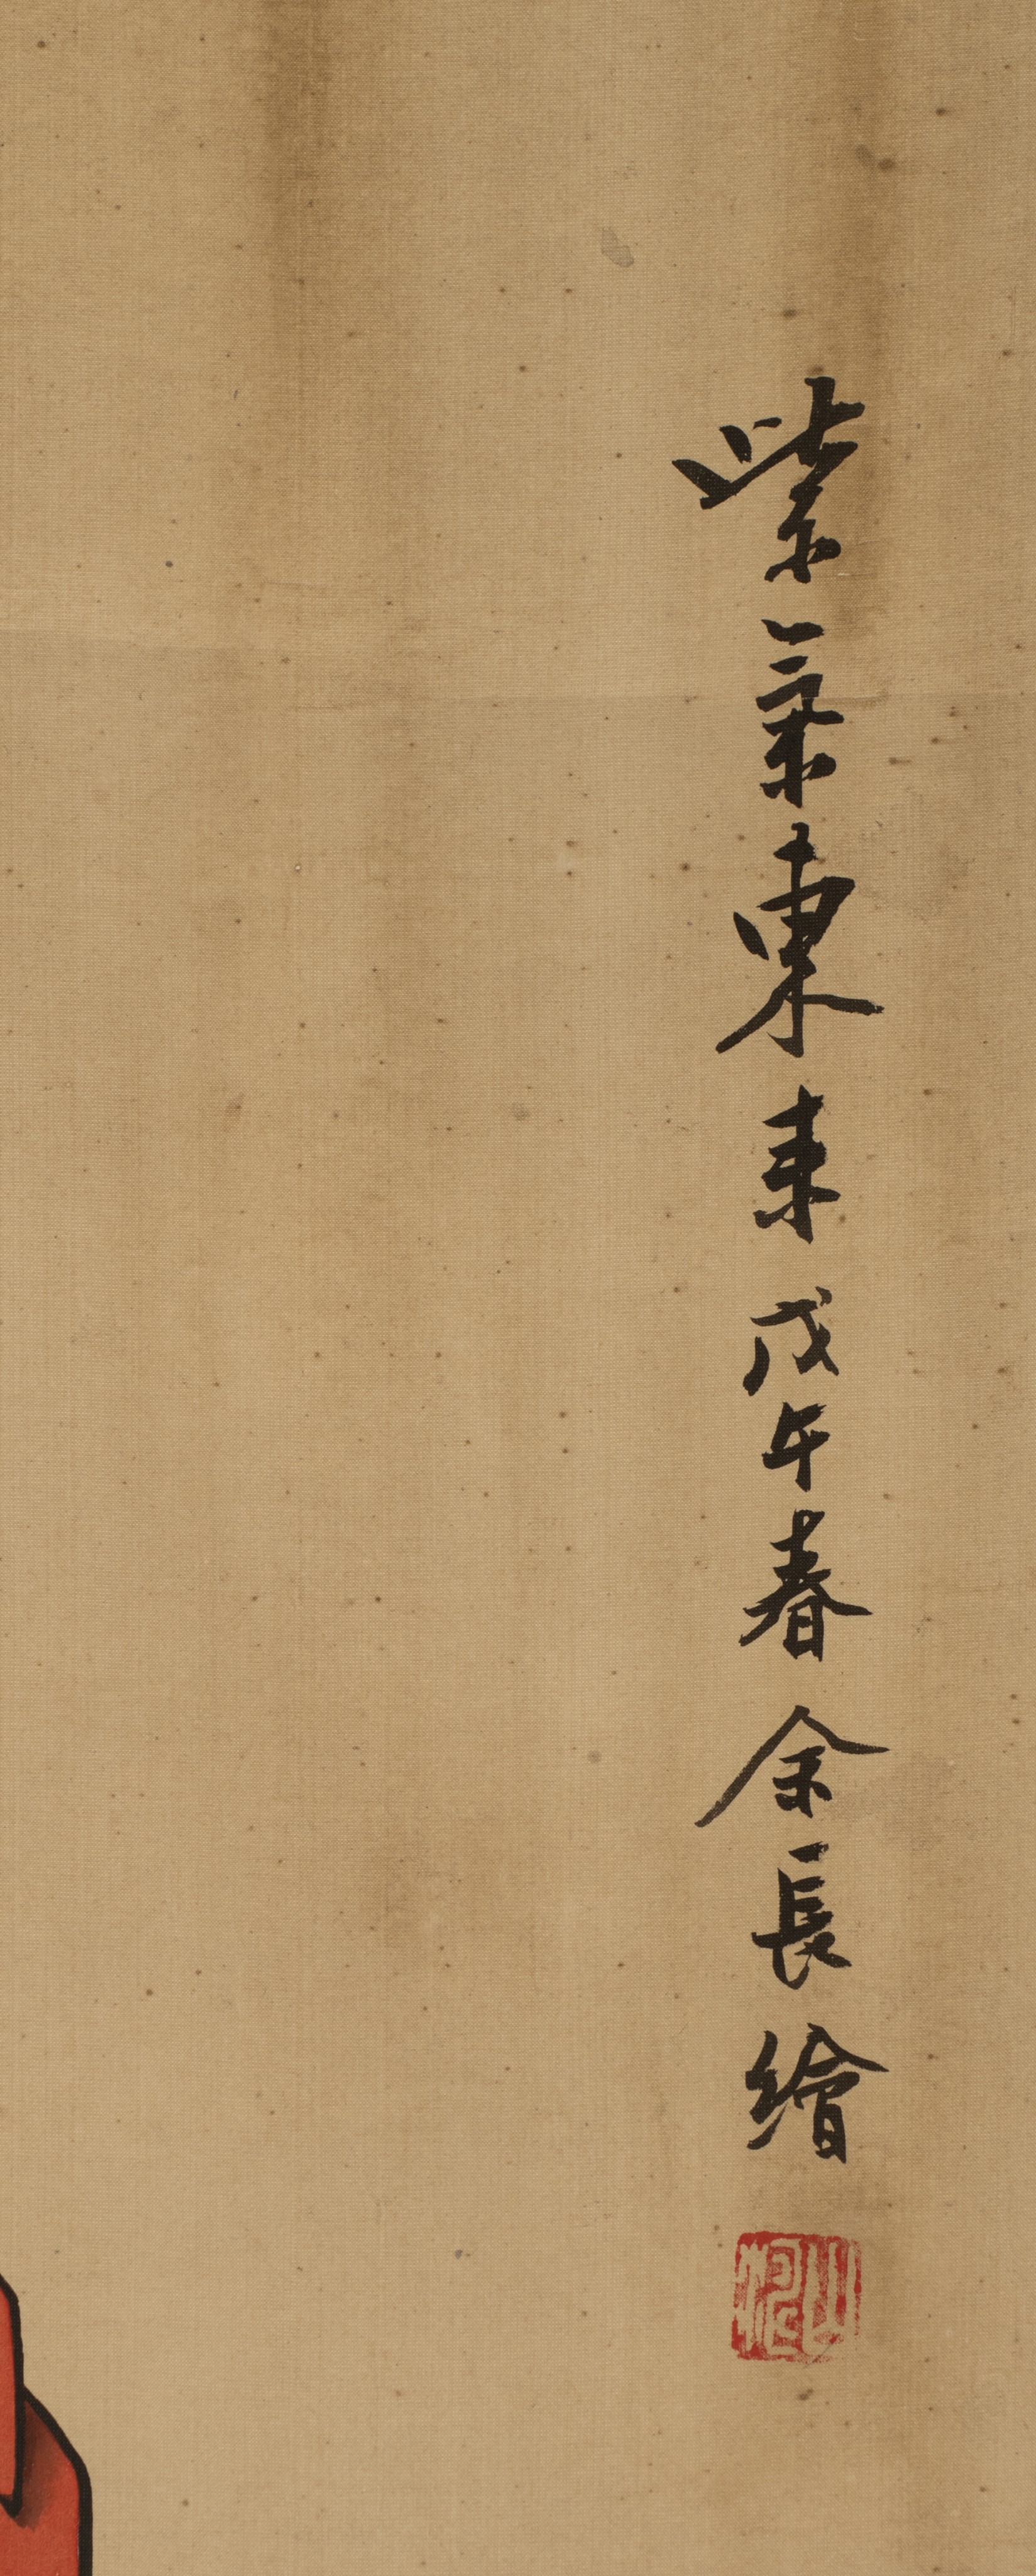 紫氣東来戊午春余長繪